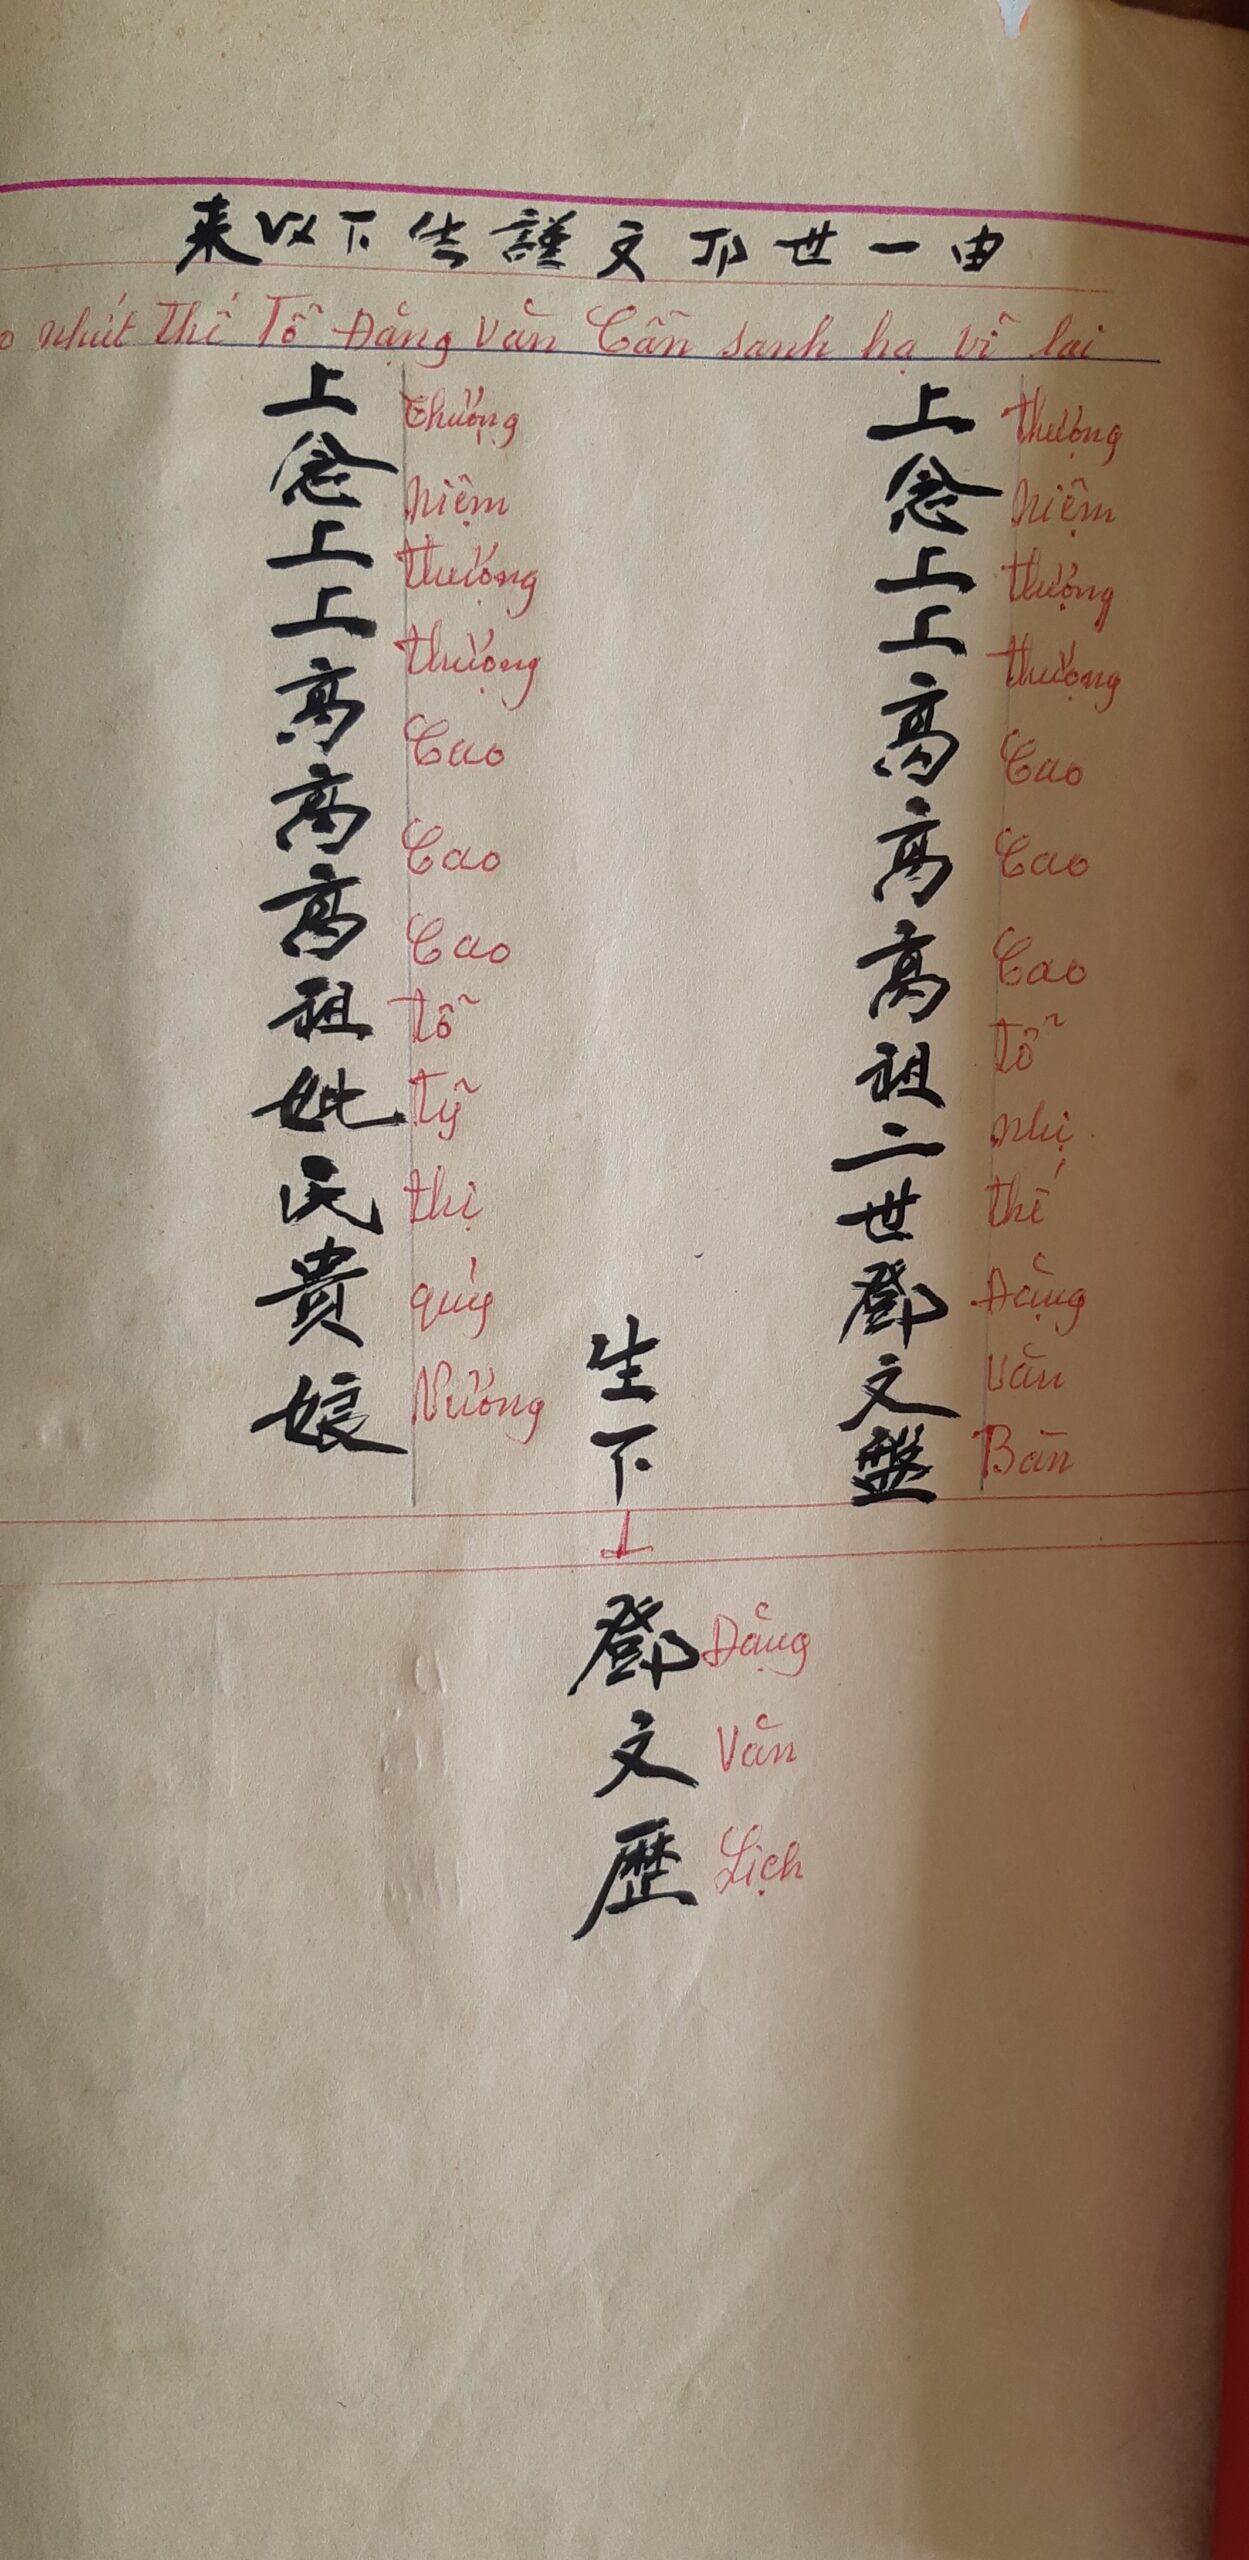 由一世邓文謹生下以來
nhứt thế Tổ Đặng Văn Cẩn sanh hạ vĩ lai
上念上上高高高祖二世鄧文盤
thượng niệm thượng thượng Cao Cao Cao tổ nhị thế Đặng Văn Bàn
生下
上念上上高高高祖妣氏貴娘
thượng niệm thượng thượng Cao Cao Cao tổ tỷ thị quý Nương
鄧文歷
Đặng Văn Lịch